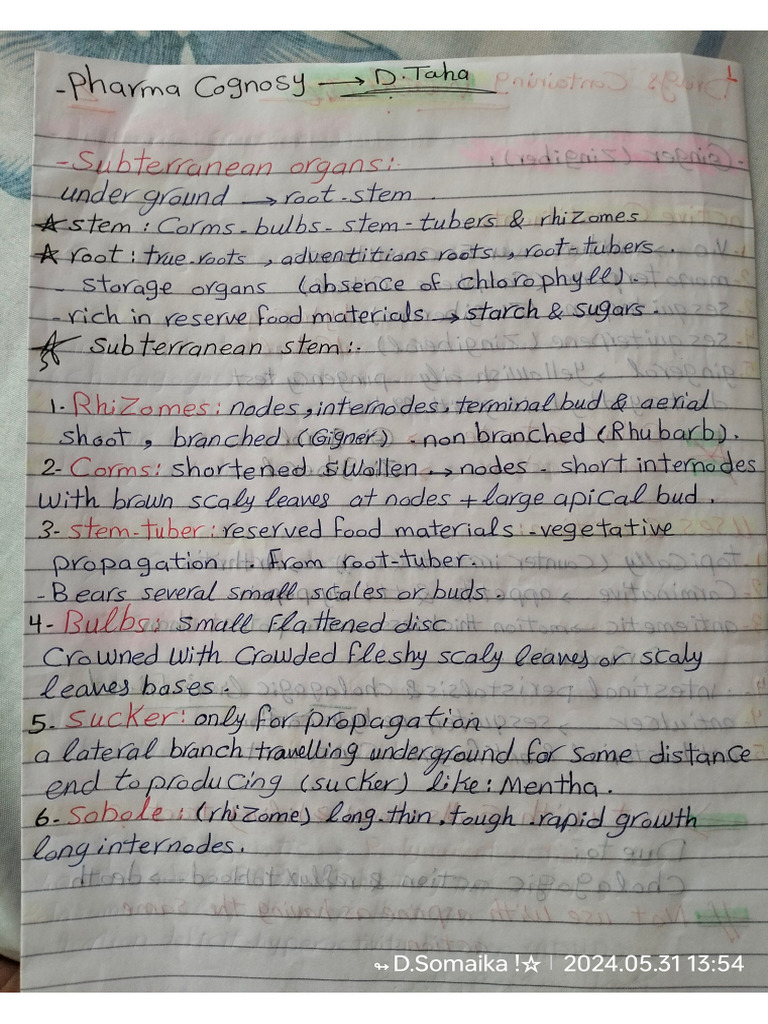 -Pharma Cognosy → D.Taha
-Subterranean organs:-
under ground → root-stem.
☆ stem: Corms-bulbs-stem-tubers & rhizomes
☆ root: true-roots, adventitions roots, root-tubers.
- storage organs (absence of chlorophyll).
-rich in reserve food materials → starch & sugars.
☆ Subterranean stem:-
1. RhiZomes: nodes, internodes, terminal bud & aerial
shoot, branched (Gigner) .non branched (Rhubarb).
2- Corms: shortened swollen → nodes - short internodes
with brown scaly leaves at nodes + large apical bud.
3- stem-tuber: reserved food materials -vegetative
propagation . From root-tuber.
-Bears several small scales or buds.
4- Bulbs: small flattened disc
Crowned with crowded fleshy scaly leaves or scaly
leaves bases.
5. Sucker: only for propagation.
a lateral branch travelling underground for some distance
end to producing (sucker) like: Mentha.
6- Sobole: (rhizome) long.thin.tough.rapid growth
long internodes.
↬ D.Somaika !☆ | 2024.05.31 13:54